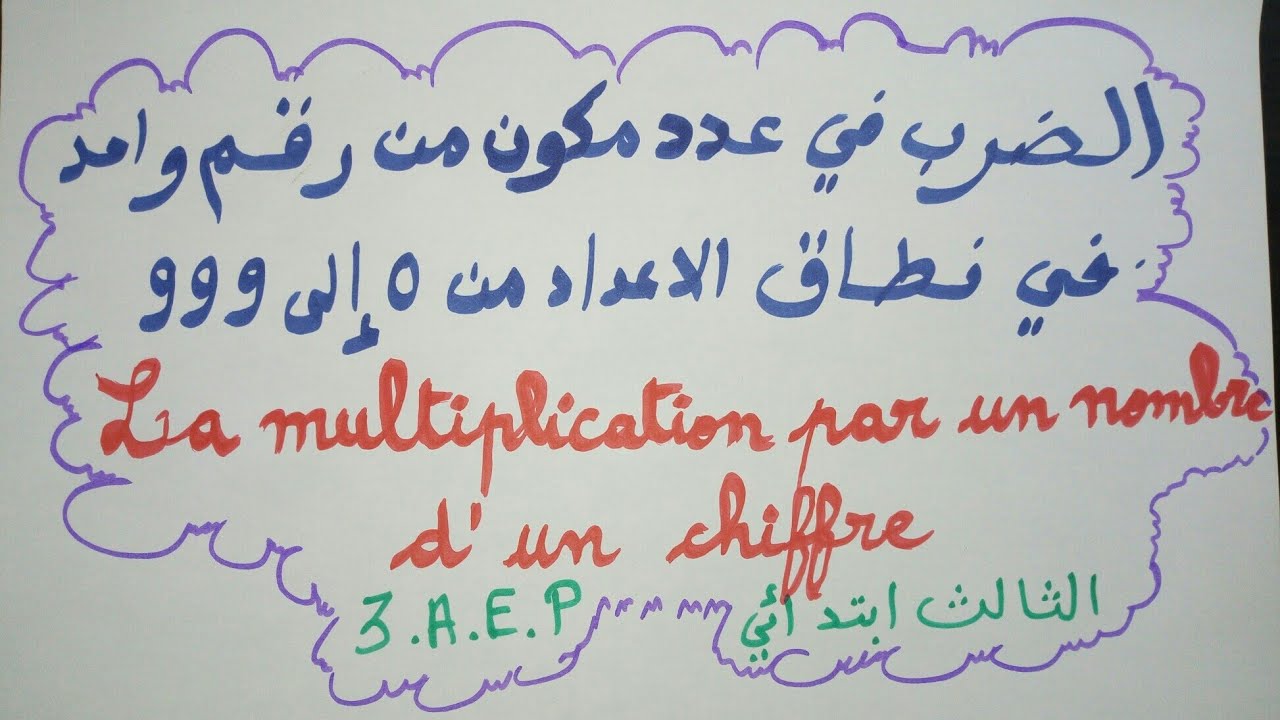 الضرب في عدد مكون من رقم واحد
في نطاق الاعداد من 0 إلى 999
La multiplication par un nombre
d'un chiffre
3.A.E.P الثالث ابتدائي